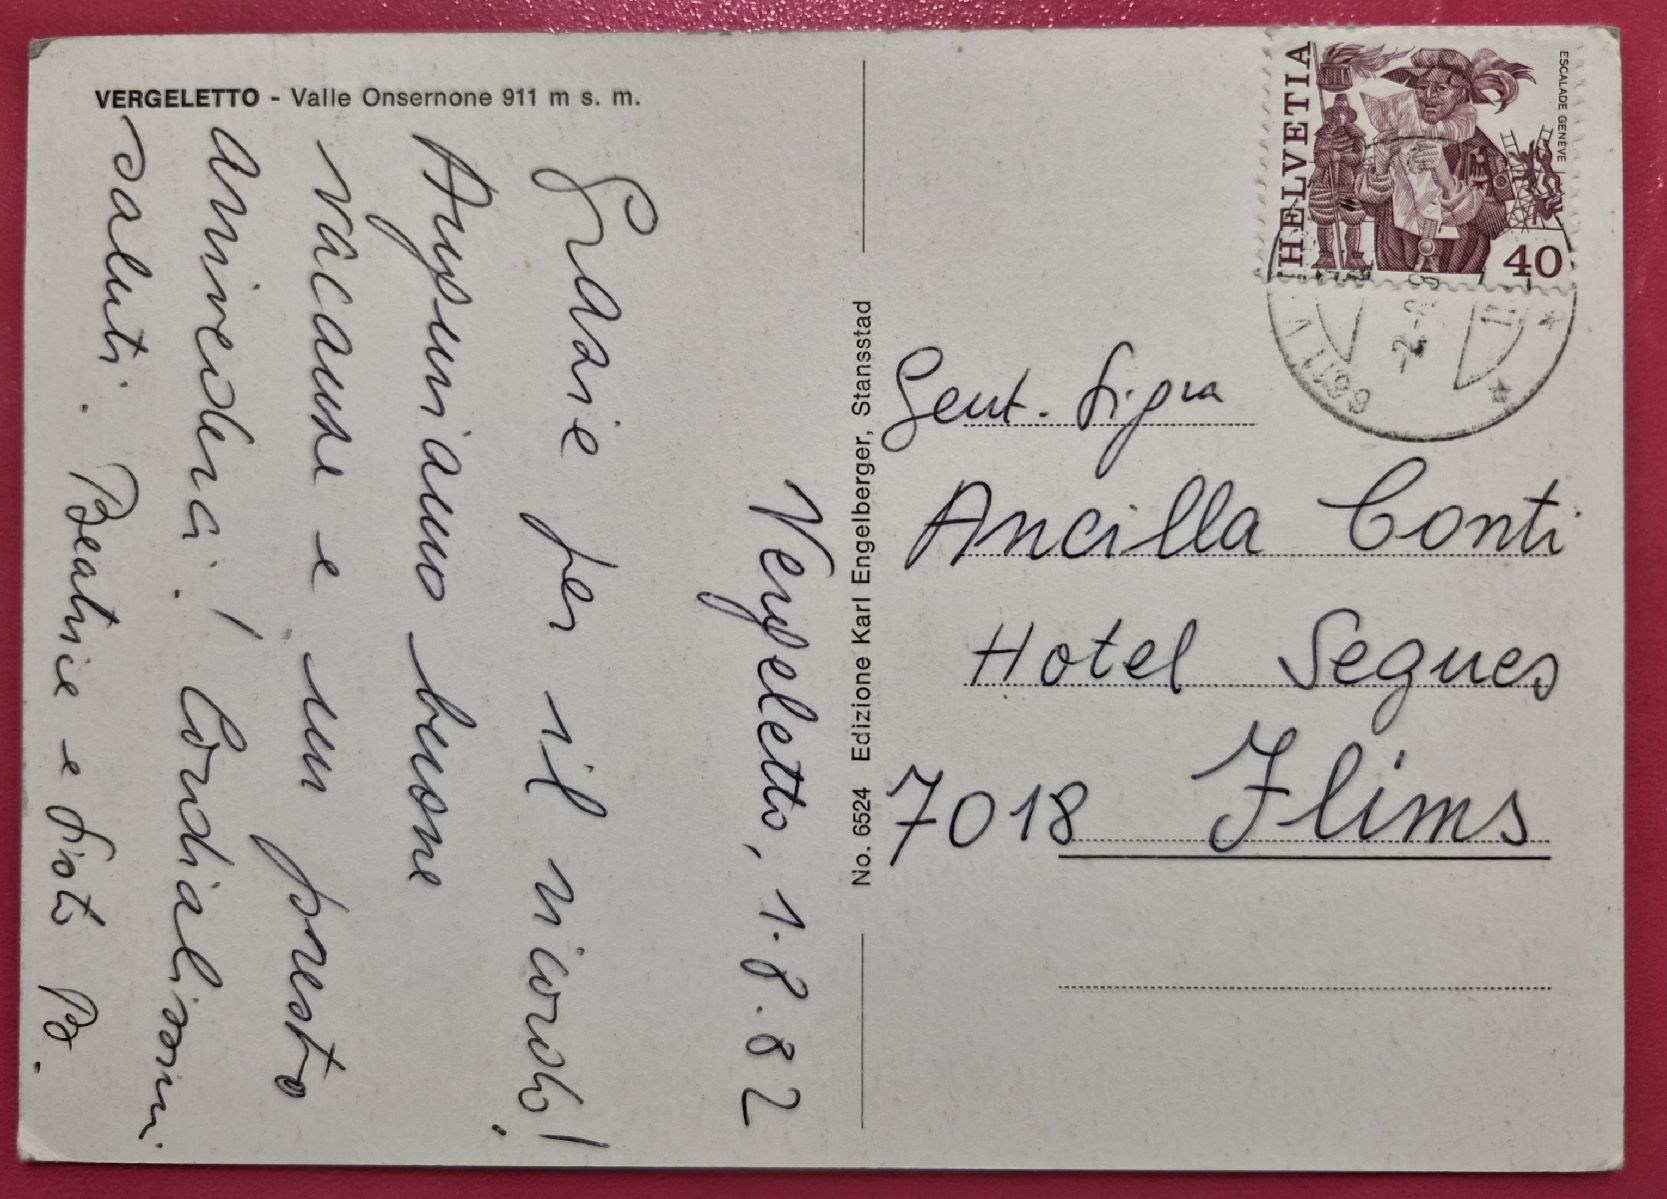 VERGELETTO - Valle Onsernone 911 m s. m.
Vergeletto, 1.8.82
Grazie per il ricordo!
Auguriamo buone
vacanze e un presto
arrivederci! Cordialissimi
saluti. Beatrice e Sisto B.
No. 6524 Edizione Karl Engelberger, Stansstad
HELVETIA
ESCALADE GENÈVE
40
6611
Gent. Sig.ra
Ancilla Conti
Hotel Segnes
7018 Flims